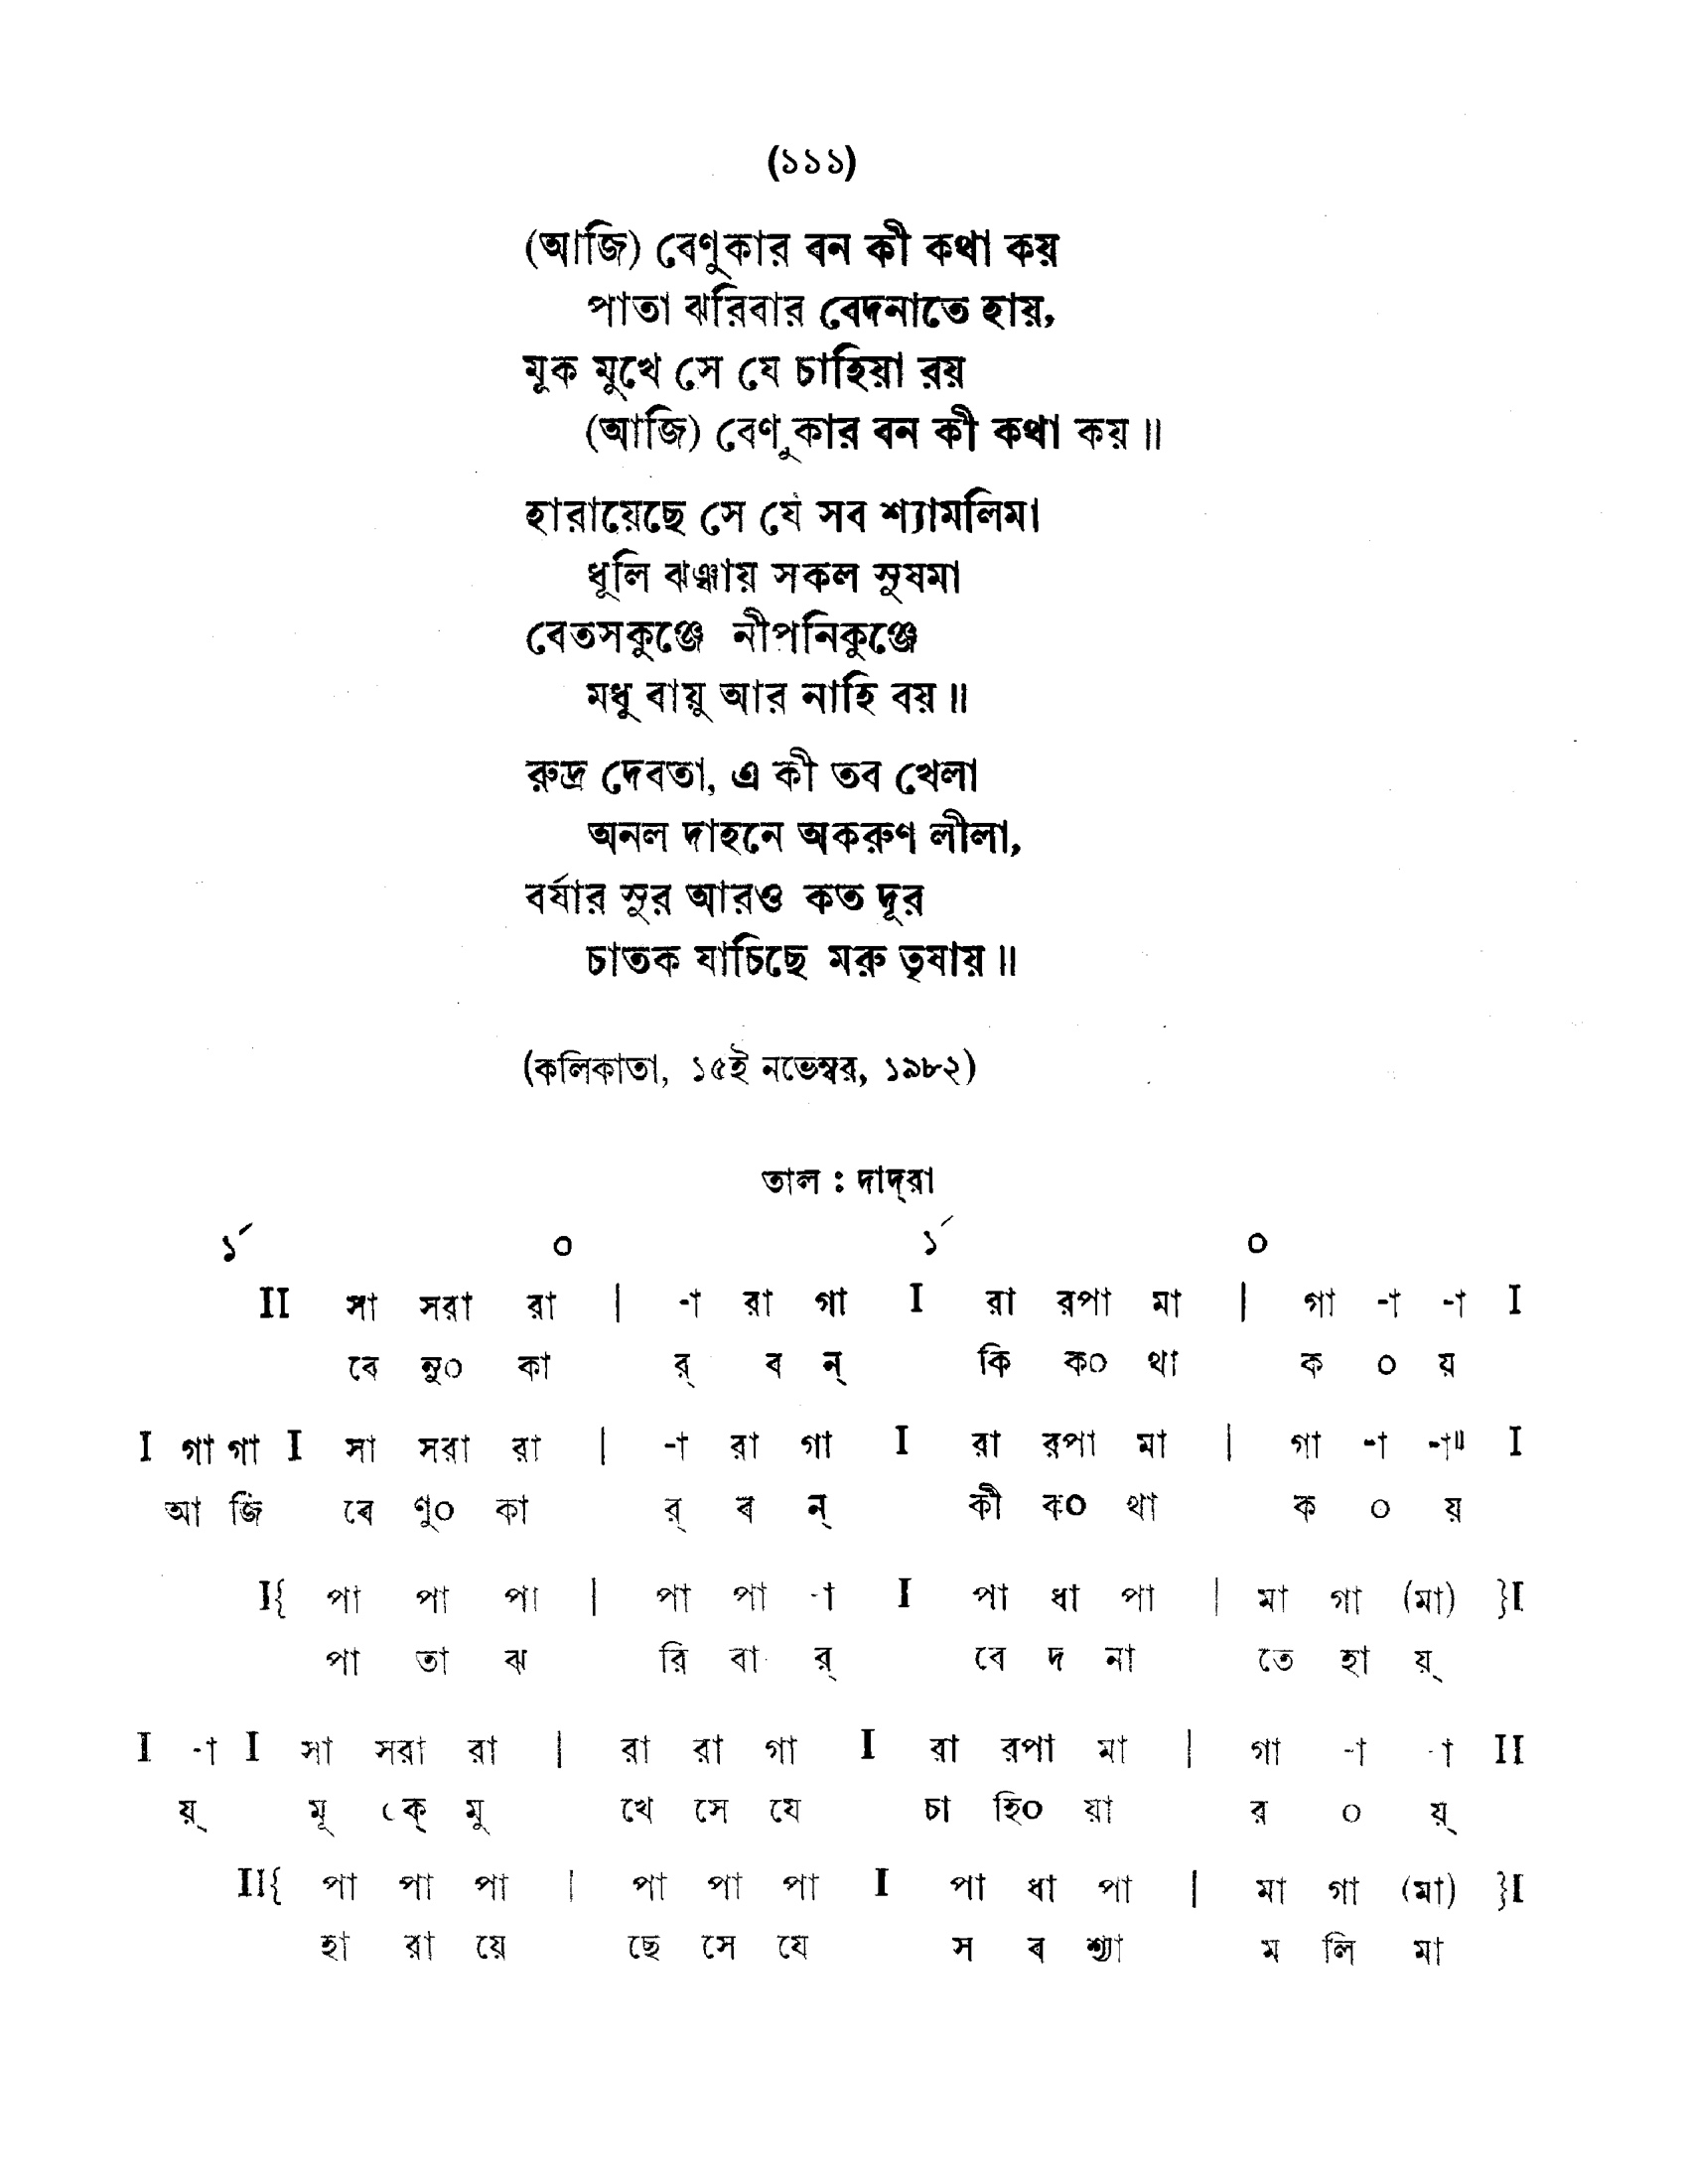 (১১১)
(আজি) বেণুকার বন কী কথা কয়
পাতা ঝরিবার বেদনাতে হায়,
মূক মুখে সে যে চাহিয়া রয়
(আজি) বেণুকার বন কী কথা কয়॥
হারায়েছে সে যে সব শ্যামলিমা
ধূলি ঝঞ্ঝায় সকল সুষমা
বেতসকুঞ্জে নীপনিকুঞ্জে
মধু বায়ু আর নাহি বয়॥
রুদ্র দেবতা, এ কী তব খেলা
অনল দাহনে অকরুণ লীলা,
বর্ষার সুর আরও কত দূর
চাতক যাচিছে মরু তৃষায়॥
(কলিকাতা, ১৫ই নভেম্বর, ১৯৮২)
তাল : দাদ্‌রা
১´ ০ ১´ ০
II সা সরা রা | -া রা গা I রা রপা মা | গা -া -া I
বে নু০ কা র্ ব ন্ কি ক০ থা ক ০ য়
I গা গা I সা সরা রা | -া রা গা I রা রপা মা | গা -া -া॥ I
আ জি বে ণু০ কা র্ ব ন্ কী ক০ থা ক ০ য়
I{ পা পা পা | পা পা -া I পা ধা পা | মা গা (মা) }I
পা তা ঝ রি বা র্ বে দ না তে হা য়্
I -া I সা সরা রা | রা রা গা I রা রপা মা | গা -া -া II
য়্ মূ ক্ মু খে সে যে চা হি০ য়া র ০ য়্
II{ পা পা পা | পা পা পা I পা ধা পা | মা গা (মা) }I
হা রা য়ে ছে সে যে স ব শ্যা ম লি মা